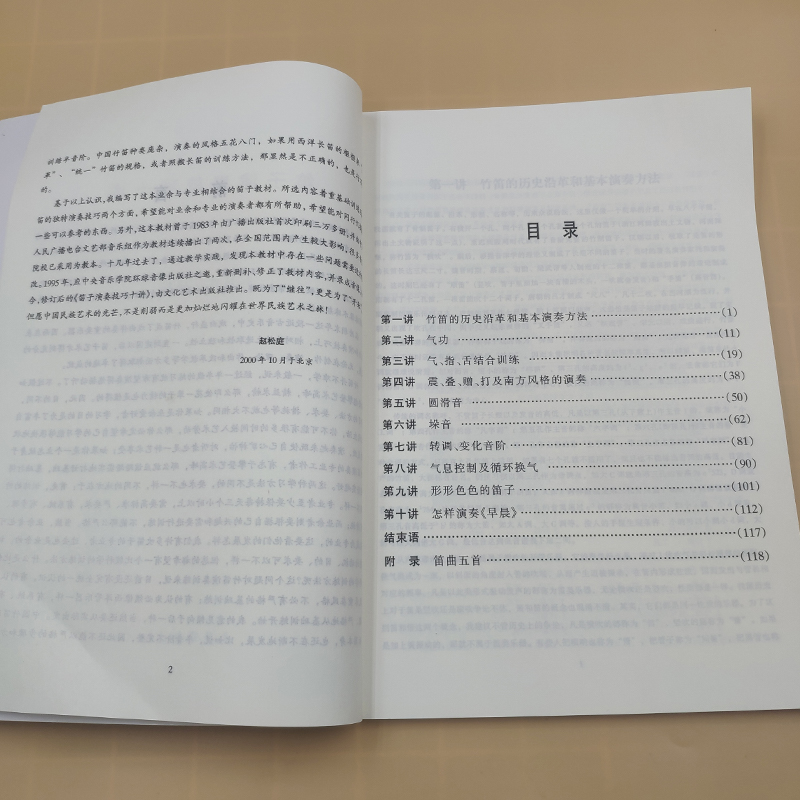 训练半音阶。中国竹笛种类庞杂，演奏的风格五花八门，如果用西洋长笛的
”、“统一”竹笛的规格，或者照搬长笛的训练方法，那显然是不正确的，也是
的。
基于以上认识，我编写了这本业余与专业相结合的笛子教材。所选内容着重基础训练
笛的独特演奏技巧两个方面，希望能对业余和专业的演奏者都有所帮助，希望能对同行
一些可以参考的东西。另外，这本教材曾于1983年由广播出版社首次印刷三万多册，并
人民广播电台文艺部音乐组作为教材连续播出了两次，在全国范围内产生较大影响，很多
院校已采用为教本。十几年过去了，通过教学实践，发现本教材中存在一些问题需要
改。1995年，应中央音乐学院环球音像出版社之邀，重新删补、修正了教材内容，并录成
今，修订后的《笛子演奏技巧十讲》，由文化艺术出版社推出。既为了“继往”，更是为了“开
但愿中国民族艺术的光芒，不是削弱而是更加灿烂地闪耀在世界民族艺术之林！
赵松庭
2000年10月于北京
2
目 录
第一讲 竹笛的历史沿革和基本演奏方法……………………(1)
第二讲 气功……………………………………(11)
第三讲 气、指、舌结合训练……………………………(19)
第四讲 震、叠、赠、打及南方风格的演奏……………………(38)
第五讲 圆滑音……………………………………(50)
第六讲 垛音……………………………………(62)
第七讲 转调、变化音阶………………………………(81)
第八讲 气息控制及循环换气……………………………(90)
第九讲 形形色色的笛子………………………………(101)
第十讲 怎样演奏《早晨》………………………………(112)
结束语……………………………………………(117)
附 录 笛曲五首…………………………………(118)